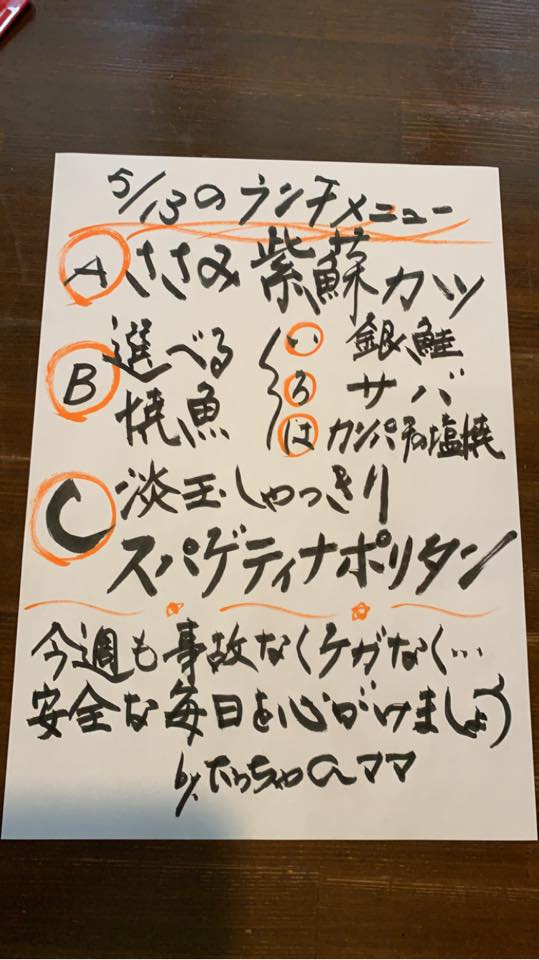 5/13のランチメニュー
A ささみ紫蘇カツ
B 選べる焼魚
い 銀鮭
ろ サバ
は カンパチの塩焼
C 淡玉しゃっきり
スパゲティナポリタン
今週も事故なくケガなく…
安全な毎日を心がけましょう
by. たっちゃんママ